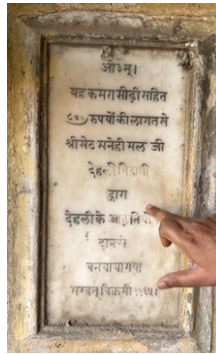 ओ३म्।
यह कमरा सीढ़ी सहित
रुपयों की लागत से
श्री सेठ मनेही मल जी
देहली निवासी
द्वारा
देहली के
दान से
बनवाया गया
सम्वत् विक्रमी